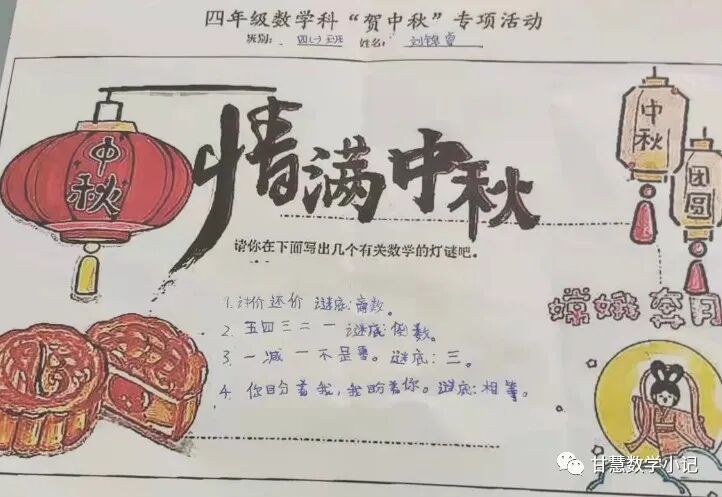 四年级数学科“贺中秋”专项活动
班别: 四(一)班 姓名: 刘锦睿
中秋
情满中秋
中秋
团圆
请你在下面写出几个有关数学的灯谜吧。
1.讨价还价 谜底:商数。
2. 五四三二一 谜底:倒数。
3. 一减一不是零。谜底:三。
4. 你盼着我,我盼着你。谜底:相等。
嫦娥奔月
甘慧数学小记